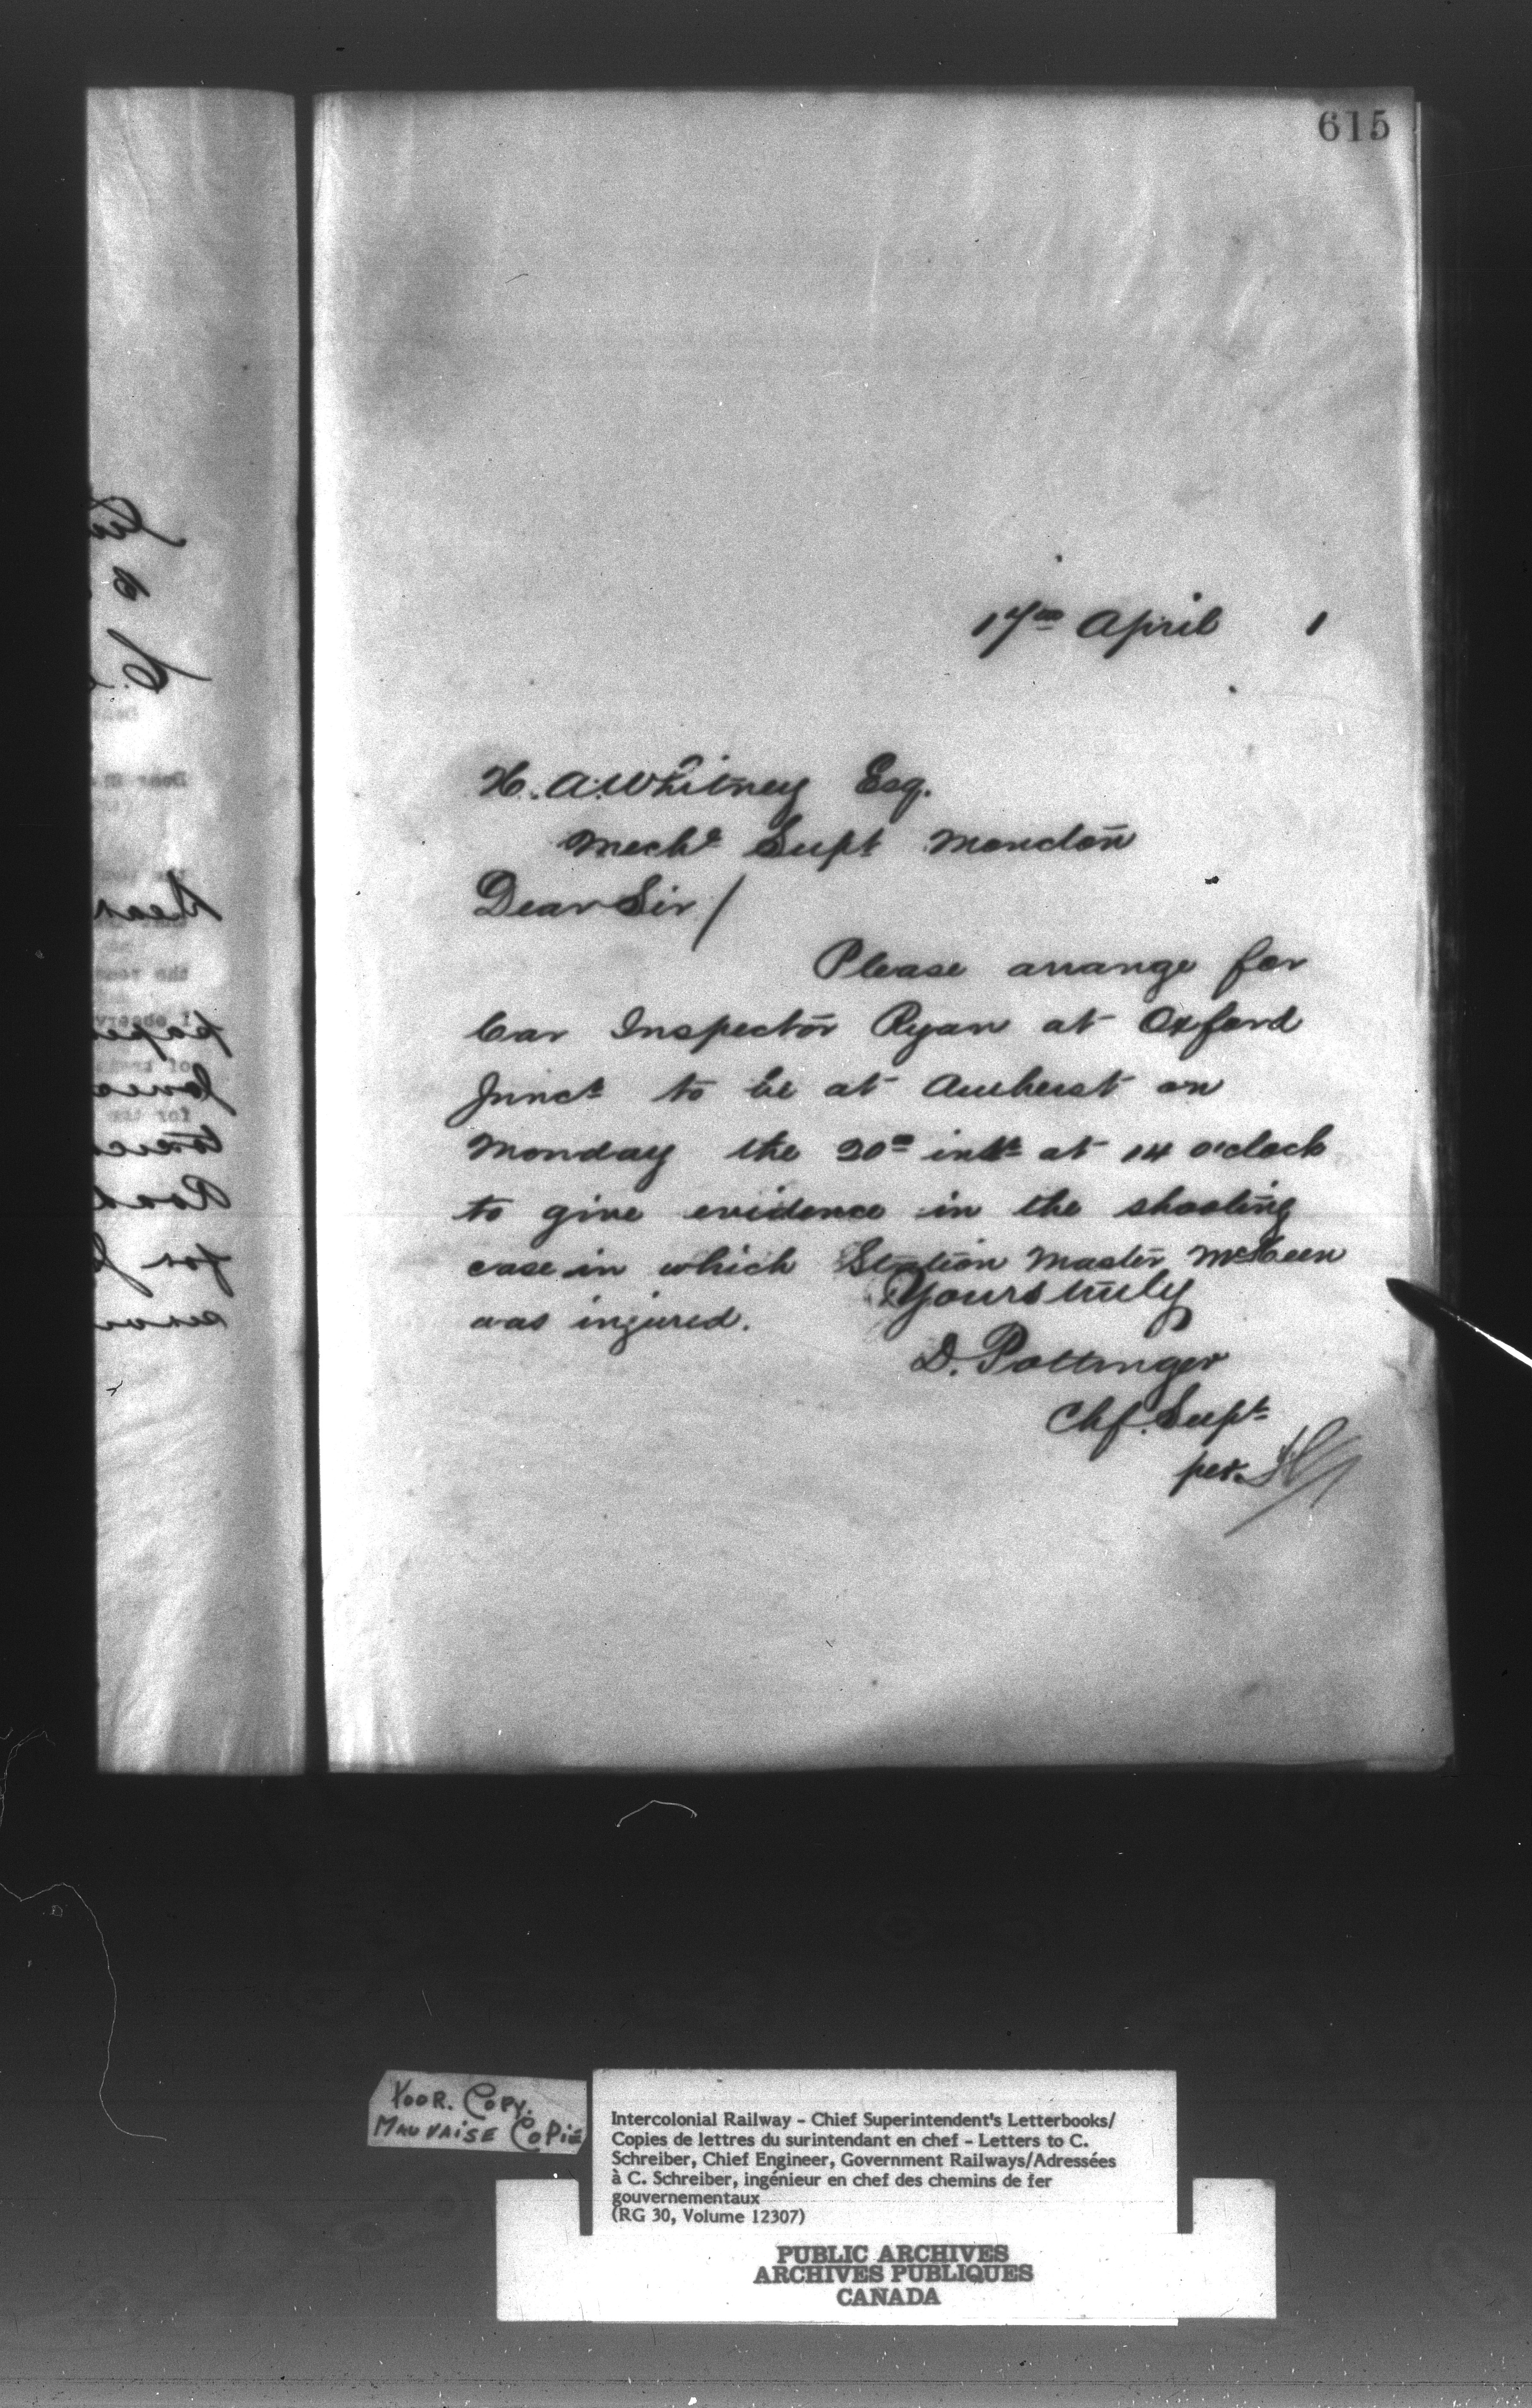 615
17th April 1
H. A. Whitney Esq.
Mechl Supt Moncton
Dear Sir/
Please arrange for
Car Inspector Ryan at Oxford
Junct to be at Amherst on
Monday the 20th inst at 14 o'clock
to give evidence in the shooting
case in which Station Master McKeen
was injured.
Yours truly
D. Pottinger
Chf. Supt
per
POOR. COPY.
MAUVAISE COPIE
Intercolonial Railway - Chief Superintendent's Letterbooks/
Copies de lettres du surintendant en chef - Letters to C.
Schreiber, Chief Engineer, Government Railways/Adressées
à C. Schreiber, ingénieur en chef des chemins de fer
gouvernementaux
(RG 30, Volume 12307)
PUBLIC ARCHIVES
ARCHIVES PUBLIQUES
CANADA